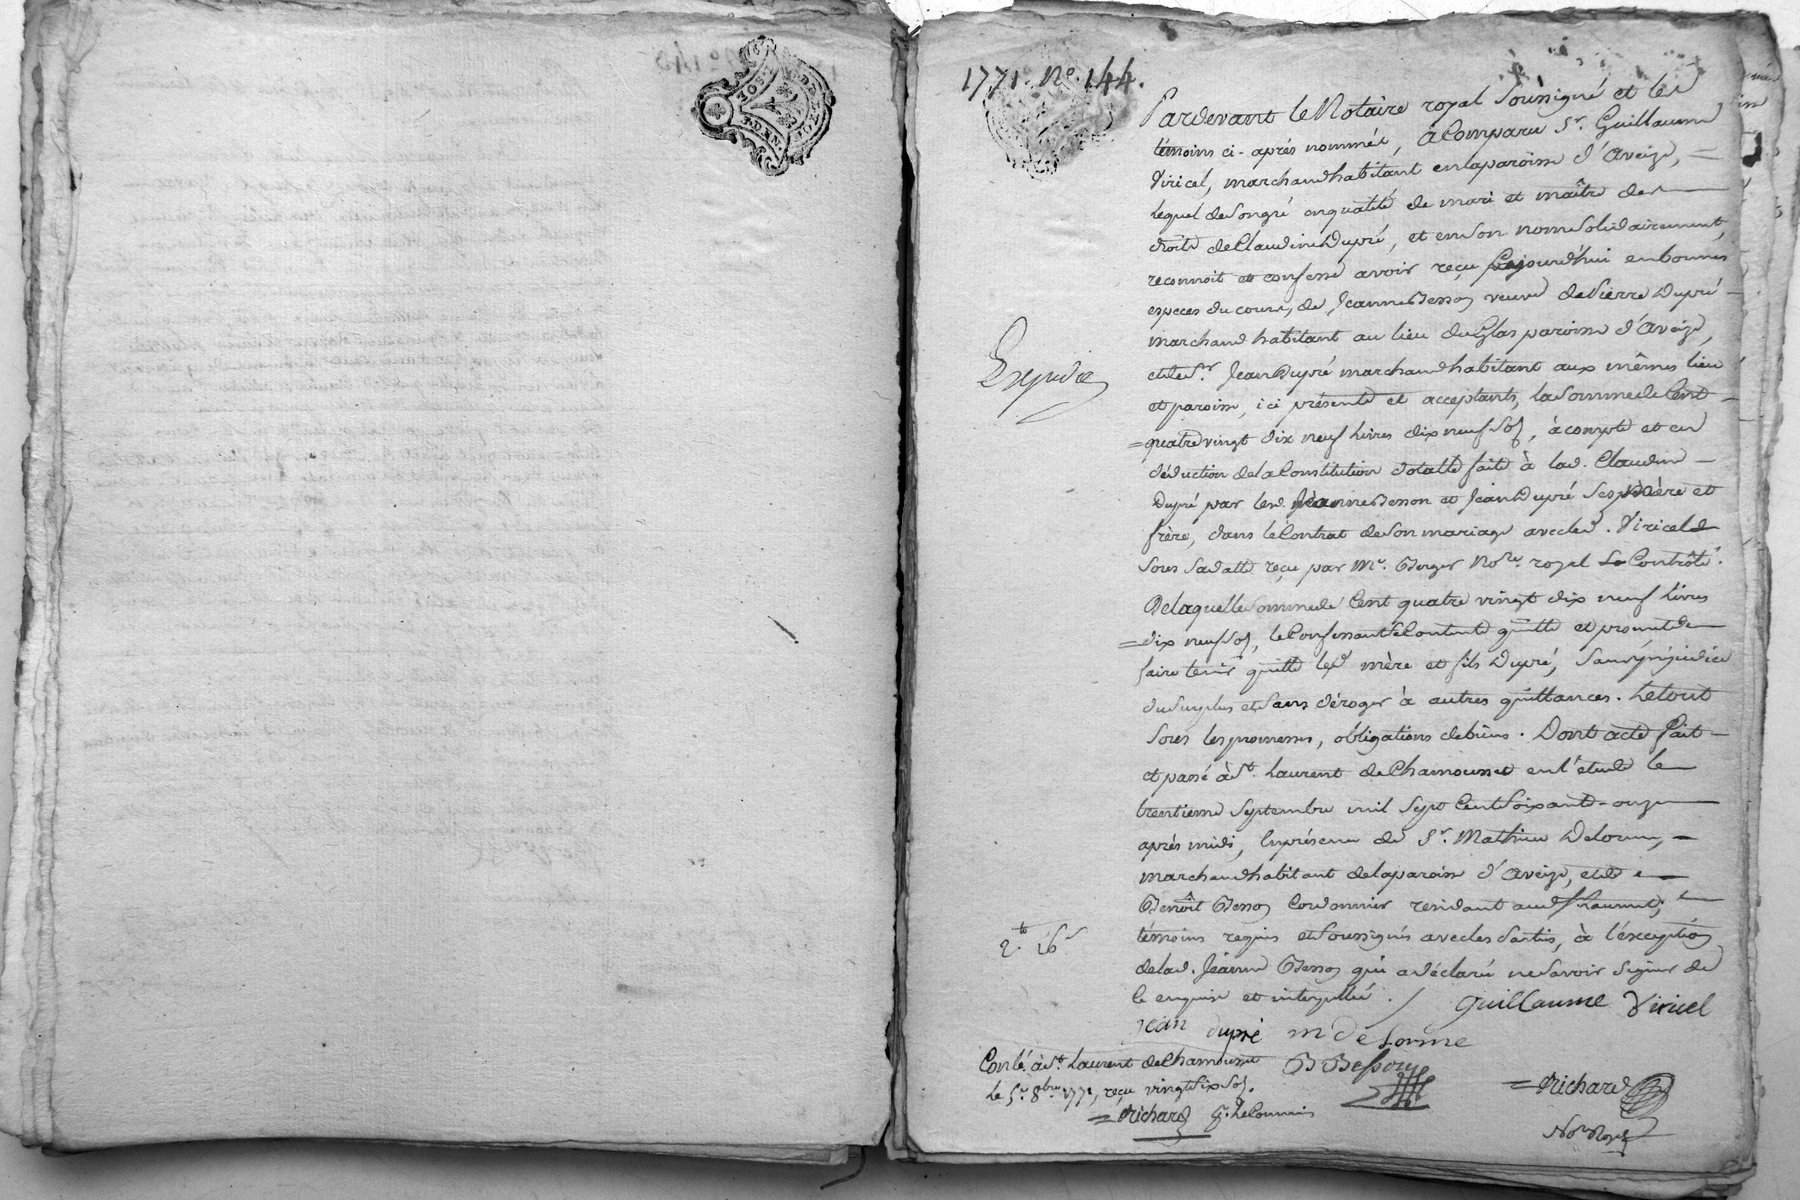 1771. N.º 144.
Pardevant le Notaire royal soussigné et les
témoins ci-après nommés, a Comparu Sr. Guillaume
Viricel, marchand habitant en la paroisse d'Aveize,
lequel de son gré en qualité de mari et maître des
droits de Claudine Dupré, et en son nom solidairement,
reconnoit et confesse avoir reçu cejourd'hui en bonnes
especes du cours, de Jeanne Besson veuve de Pierre Dupré
marchand habitant au lieu du Glas paroisse d'Aveize,
et de Sr. Jean Dupré marchand habitant aux mêmes lieu
et paroisse, ici présents et acceptants, la somme de Cent
quatre vingt dix neuf livres dix neuf sols, à compte et en
déduction de la Constitution dotalle faite à lad. Claudine
Dupré par lesd. Jeanne Besson et Jean Dupré ses mère et
frère, dans le Contrat de son mariage avec led. Viricel
sous sa datte reçu par Me. Berger Nore. royal Contrôlé.
De laquelle somme de Cent quatre vingt dix neuf livres
dix neuf sols, le Confessant se Contente quitte et promet de
faire tenir quitte lesd mère et fils Dupré, sans préjudice
du surplus et sans déroger à autres quittances. Le tout
sous les promesses, obligations de biens. Dont acte Fait
et passé à St. Laurent de Chamousset en l'étude le
trentieme Septembre mil Sept Cent soixante-onze
après midi, En présence de Sr. Mathieu Delorme,
marchand habitant de la paroisse d'Aveize, et de
Benoît Besson Cordonnier residant aud St Laurent,
témoins requis et soussignés avec les Parties, à l'exception
de lad. Jeanne Besson qui a déclaré ne savoir signer de
ce enquise et interpellée.
Guillaume Viricel
Jean dupré m Delorme
B Besson
Expédié
2tt 16s
Conlé. à St. Laurent de Chamousset
le 5e. 8bre 1771, reçu vingt six sols.
Richard
Richard
Nore Royal